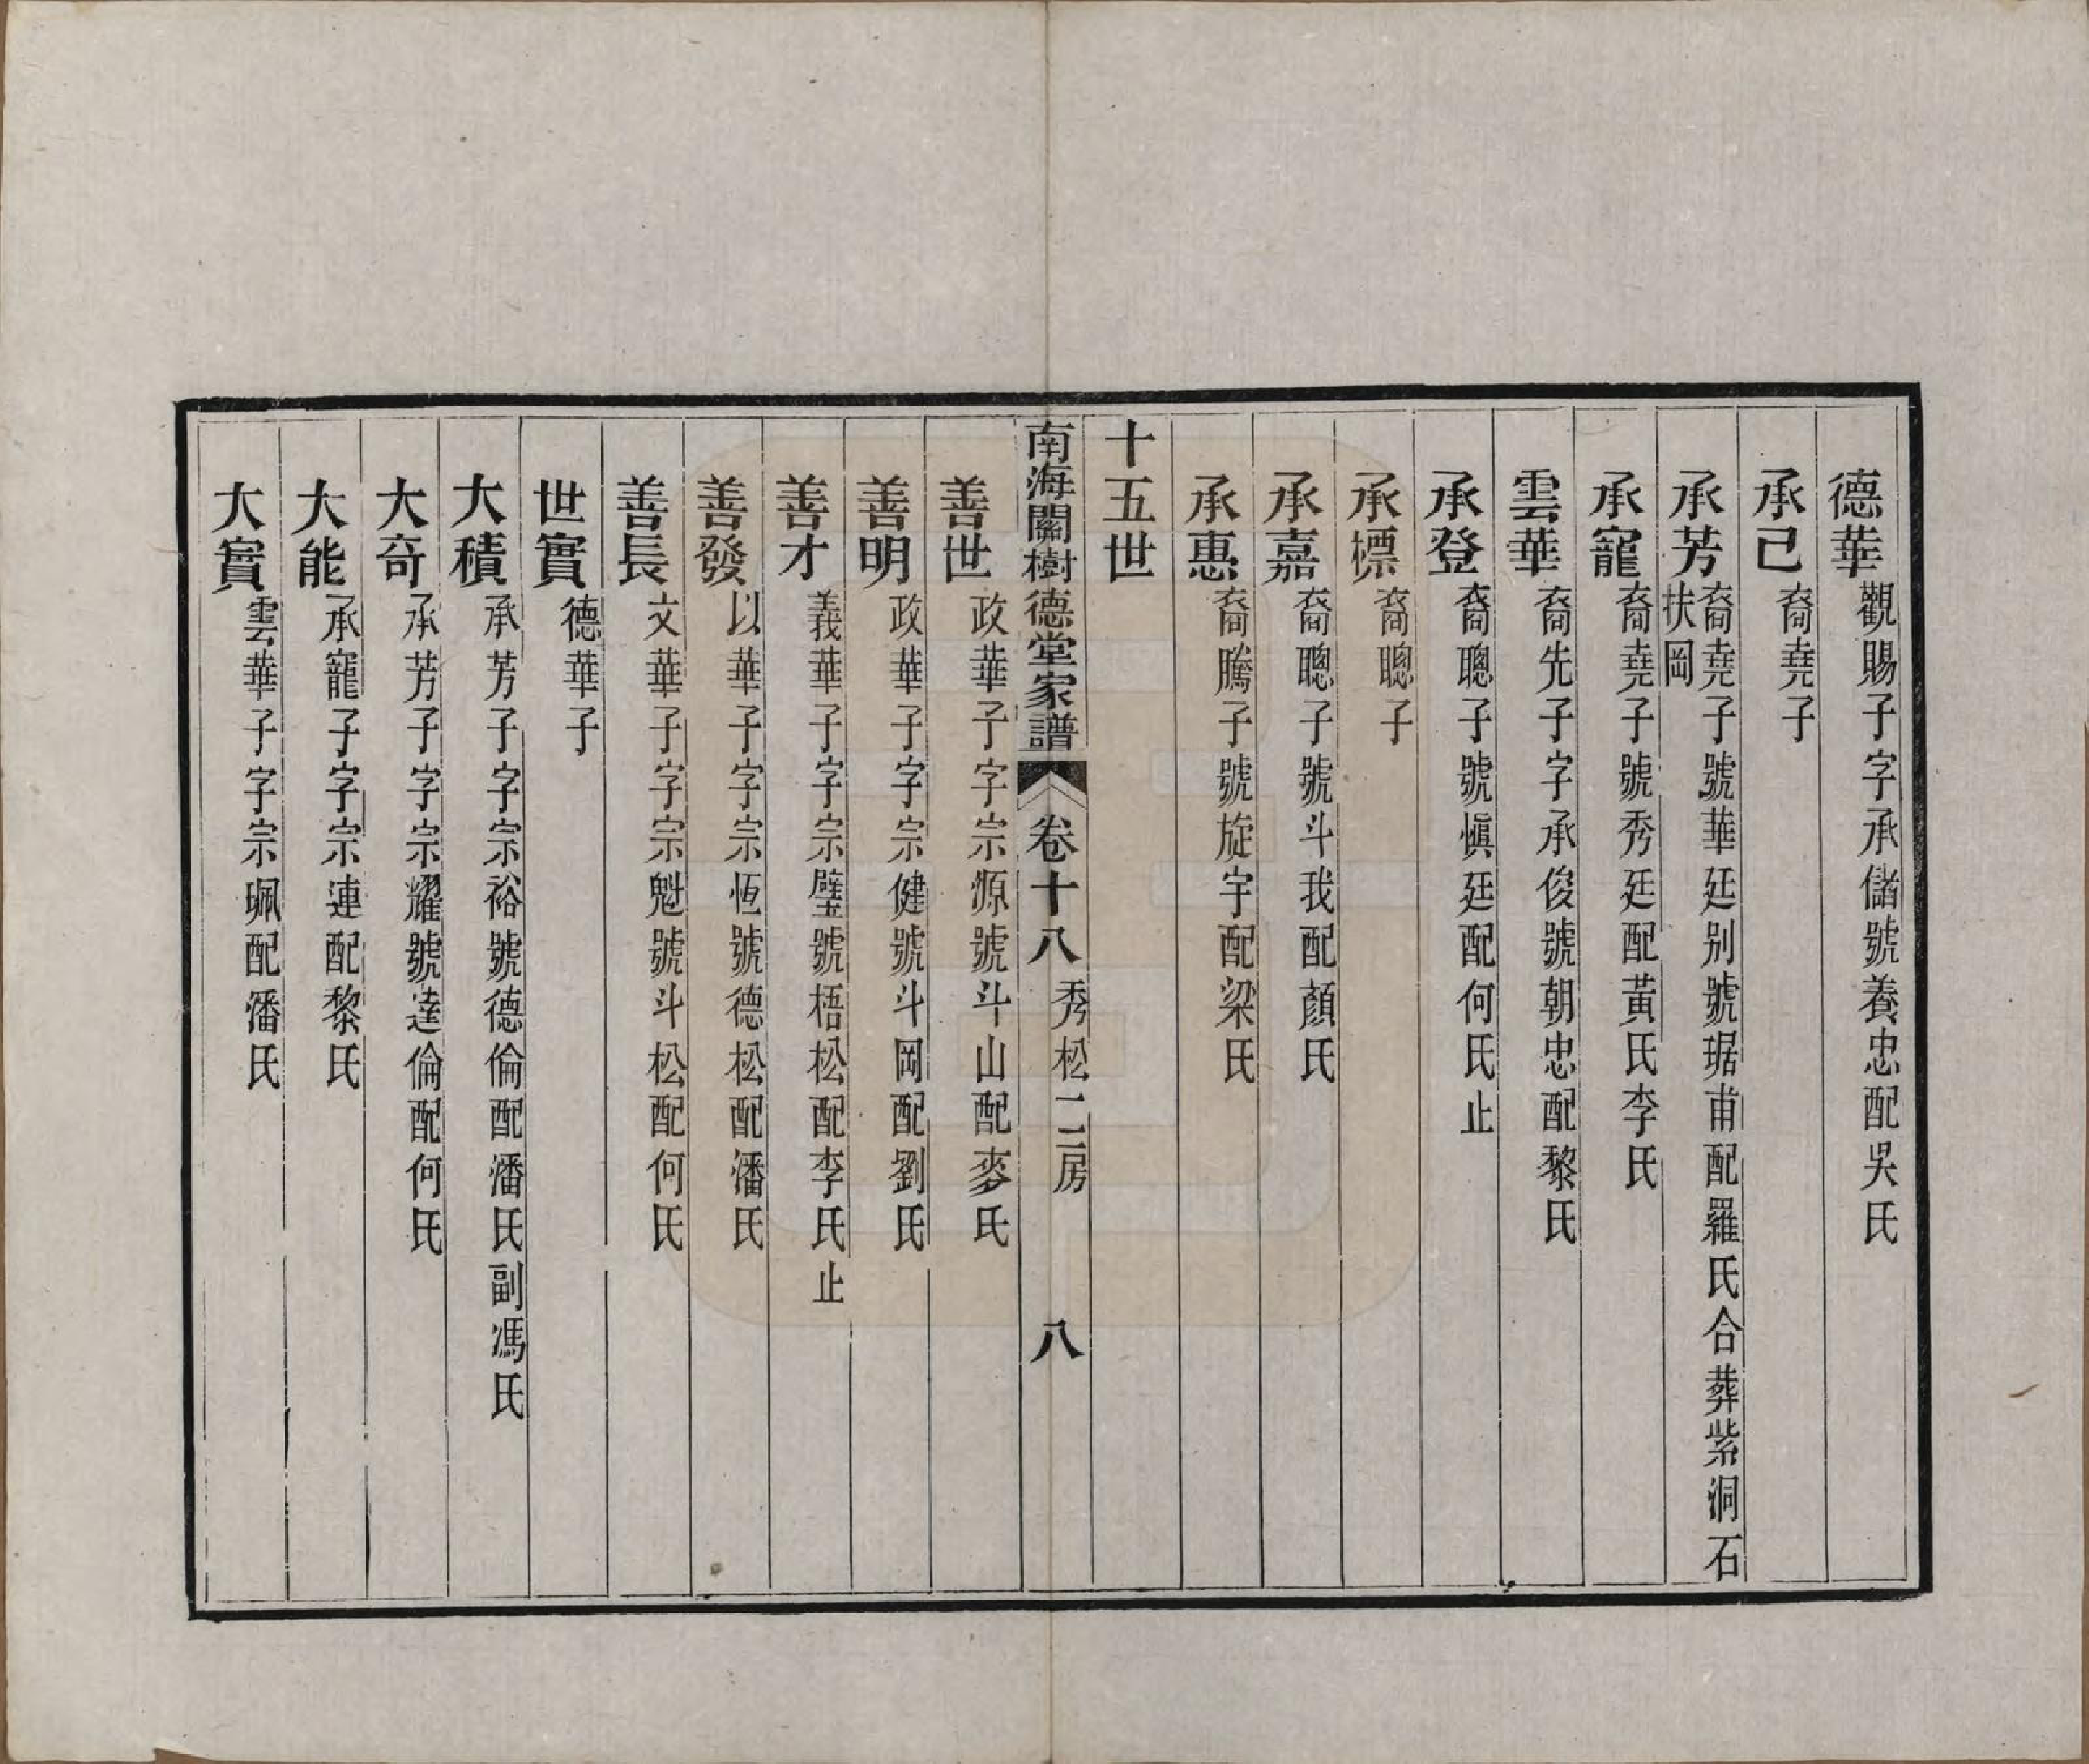 德華觀賜子字承儲號養忠配吳氏
承己裔堯子
承芳裔堯子號華廷别號琚甫配羅氏合葬紫洞石
扶岡
承寵裔堯子號秀廷配黃氏李氏
雲華裔先子字承俊號朝忠配黎氏
承登裔聰子號愼廷配何氏止
承標裔聰子
承嘉裔聰子號斗我配顏氏
承惠裔騰子號旋宇配梁氏
十五世
南海關樹德堂家譜 卷十八 秀松二房 八
善世政華子字宗源號斗山配麥氏
善明政華子字宗健號斗岡配劉氏
善才義華子字宗璧號梧松配李氏止
善發以華子字宗恆號德松配潘氏
善長文華子字宗魁號斗松配何氏
世實德華子
大積承芳子字宗裕號德倫配潘氏副馮氏
大奇承芳子字宗耀號達倫配何氏
大能承寵子字宗連配黎氏
大賓雲華子字宗珮配潘氏